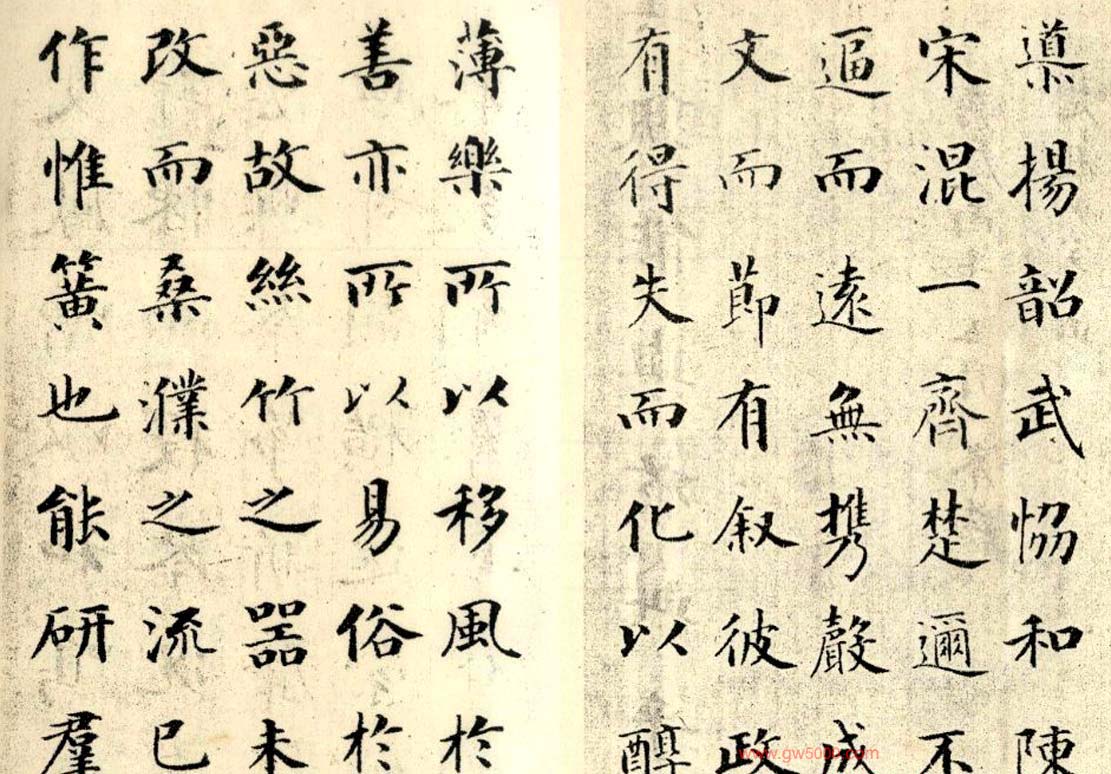 導揚韶武恊和陳
宋混一齊楚邇不
逼而遠無携聲成
文而莭有叙彼政
有得失而化以醇
薄樂所以移風於
善亦所以易俗於
惡故絲竹之器未
改而桑濮之流已
作惟簧也能研羣
www.gw5000.com